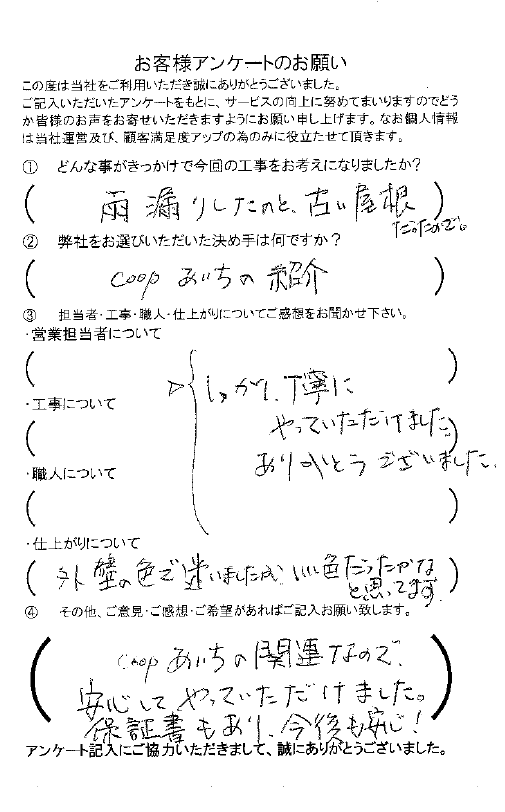 お客様アンケートのお願い
この度は当社をご利用いただき誠にありがとうございました。
ご記入いただいたアンケートをもとに、サービスの向上に努めてまいりますのでどう
か皆様のお声をお寄せいただきますようにお願い申し上げます。なお個人情報
は当社運営及び、顧客満足度アップの為のみに役立たせて頂きます。
① どんな事がきっかけで今回の工事をお考えになりましたか?
雨漏りしたのと、古い屋根
だったので。
② 弊社をお選びいただいた決め手は何ですか?
coop あいちの紹介
③ 担当者・工事・職人・仕上がりについてご感想をお聞かせ下さい。
・営業担当者について
しっかり、丁寧に
・工事について
やっていただけました。
ありがとうございました。
・職人について
・仕上がりについて
外壁の色で迷いましたが、いい色だったかな
と思ってます。
④ その他、ご意見・ご感想・ご希望があればご記入お願い致します。
coop あいちの関連なので、
安心してやっていただけました。
保証書もあり、今後も安心!
アンケート記入にご協力いただきまして、誠にありがとうございました。